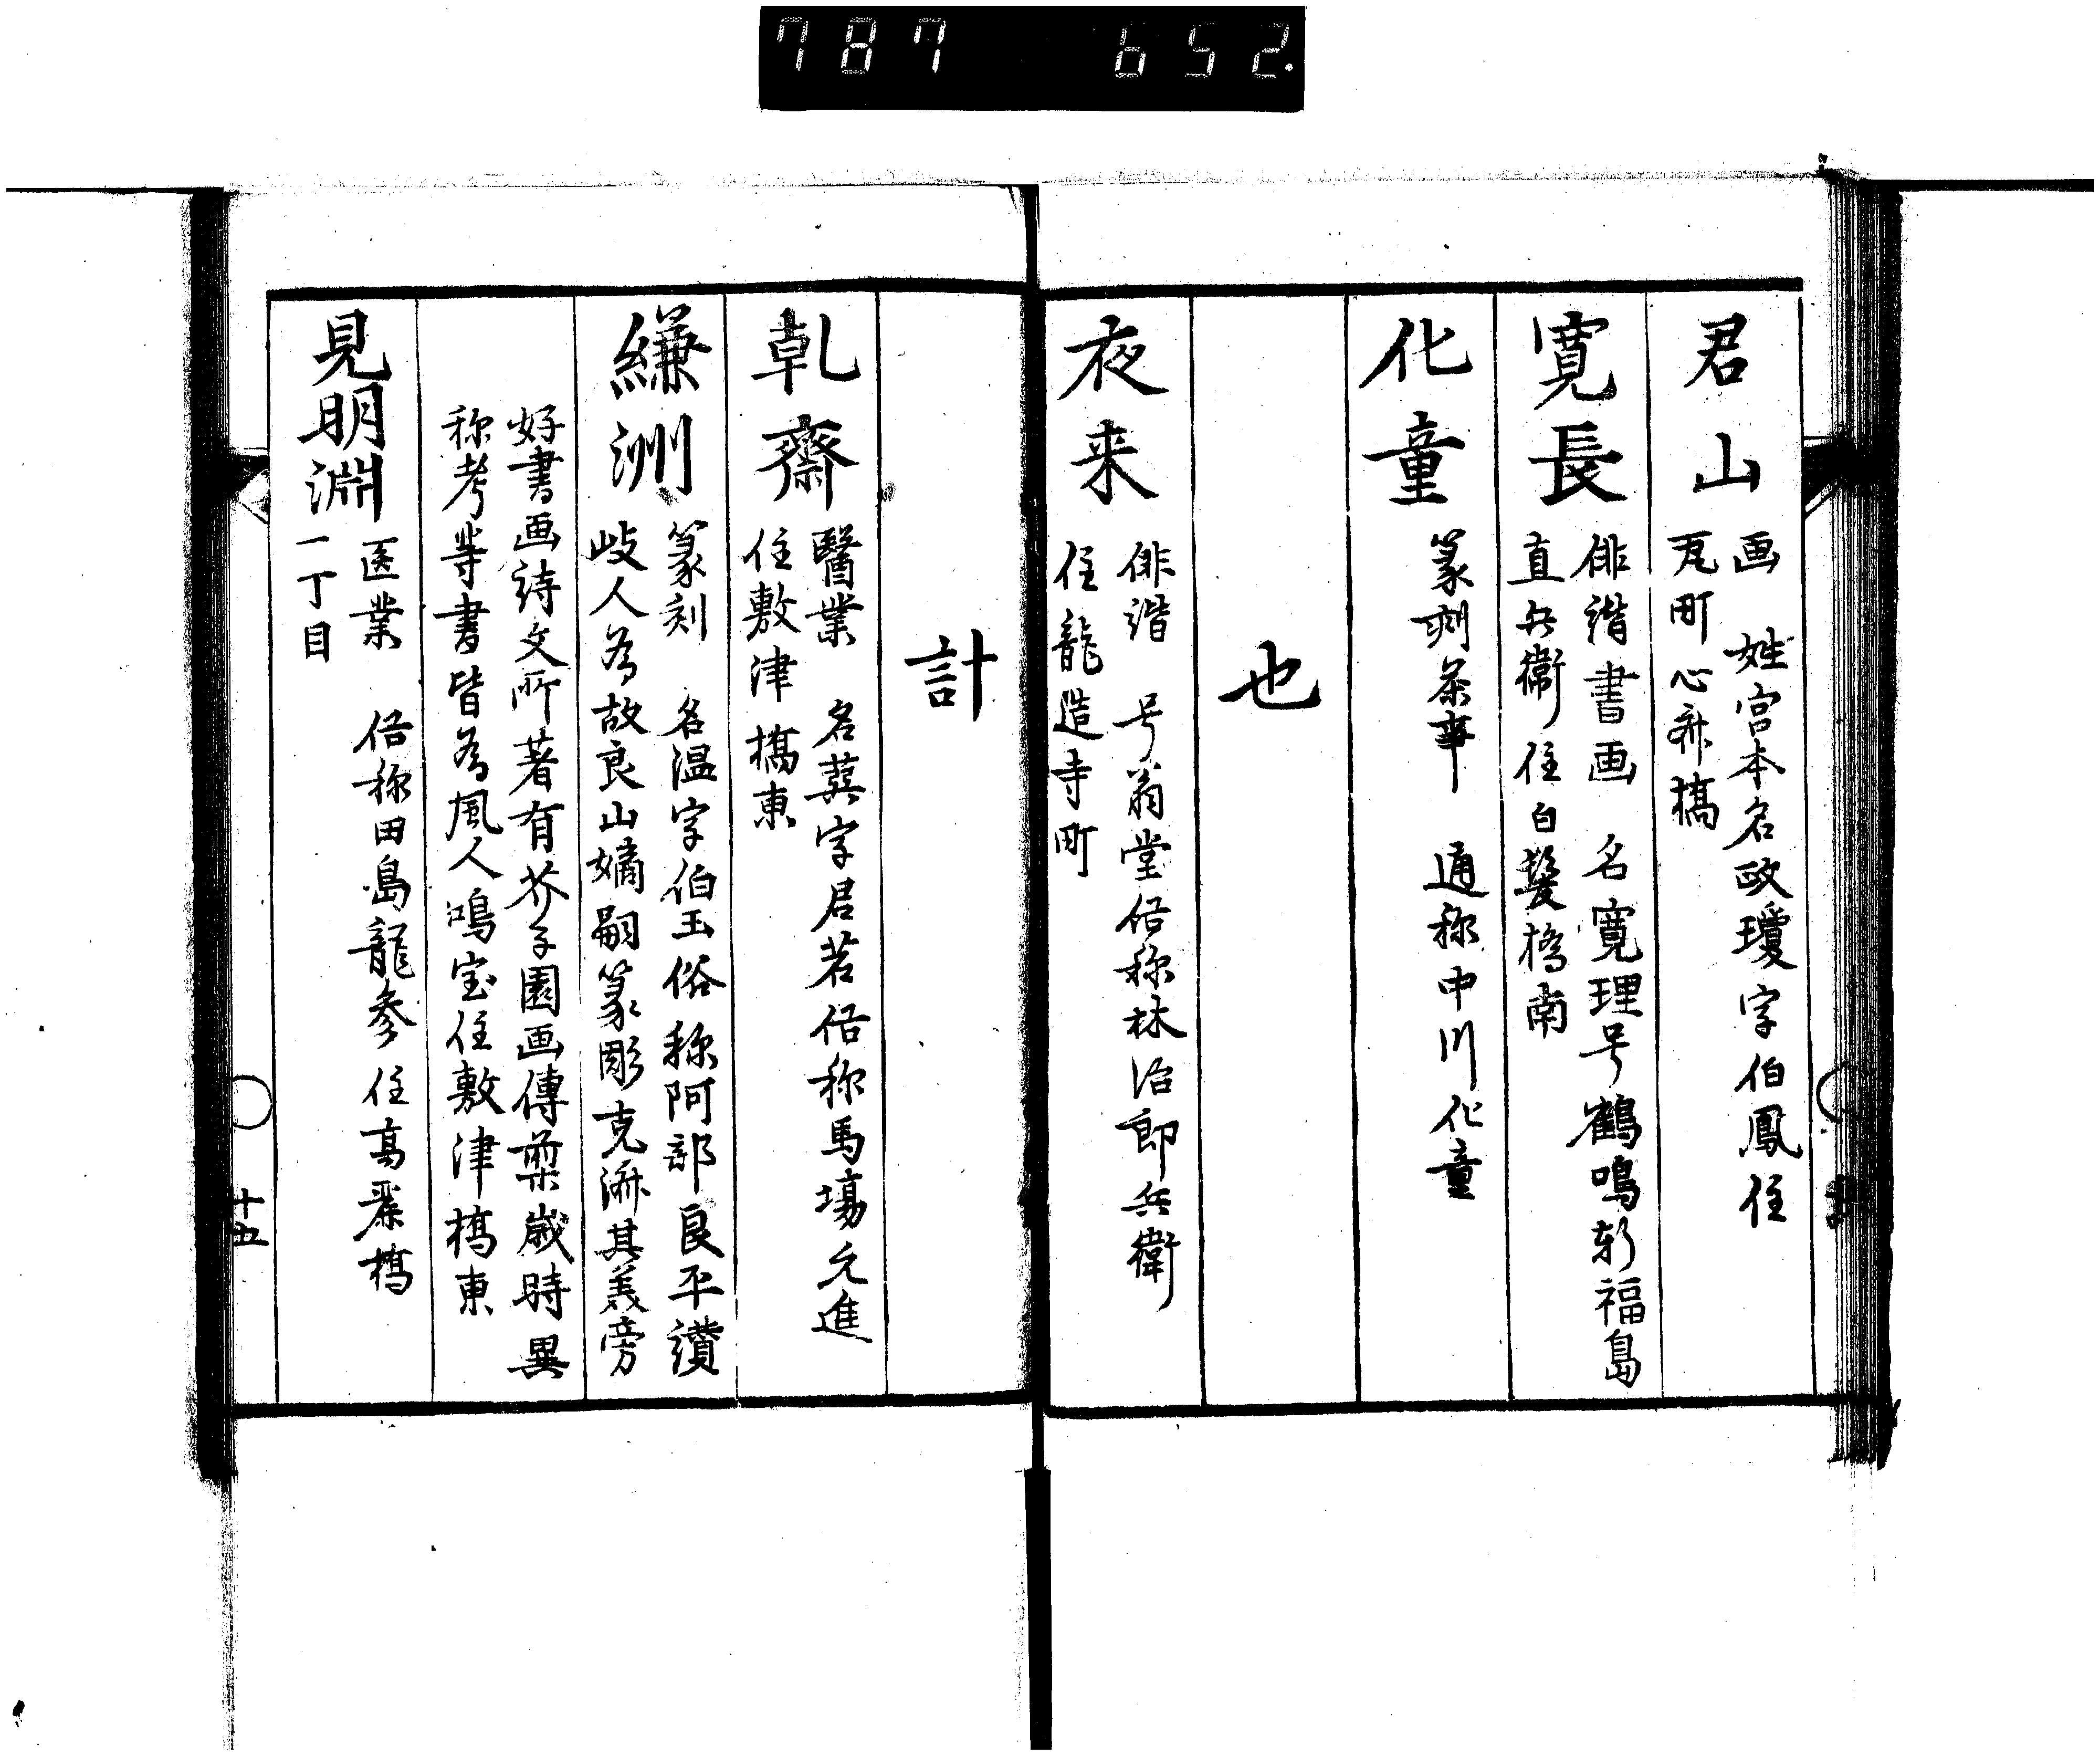 787 652.
君山
画 姓宮本名政瓊字伯鳳住
瓦町心斎橋
寛長
俳諧書画 名寛理号鶴鳴軒福島
直兵衛住白髪橋南
化童
篆刻茶事 通称中川化童
也
夜来
俳諧 号翁堂俗称林治郎兵衛
住龍造寺町
計
乹齋
醫業 名蓂字君茗俗称馬場元進
住敷津橋東
縑洲
篆刻 名温字伯玉俗称阿部良平讃
岐人為故良山嫡嗣篆彫克濟其義旁
好書画詩文所著有芥子園画傳藥歳時異
称考等書皆為風人鴻宝住敷津橋東
見明淵
医業 俗称田島龍参住高麗橋
一丁目
十五